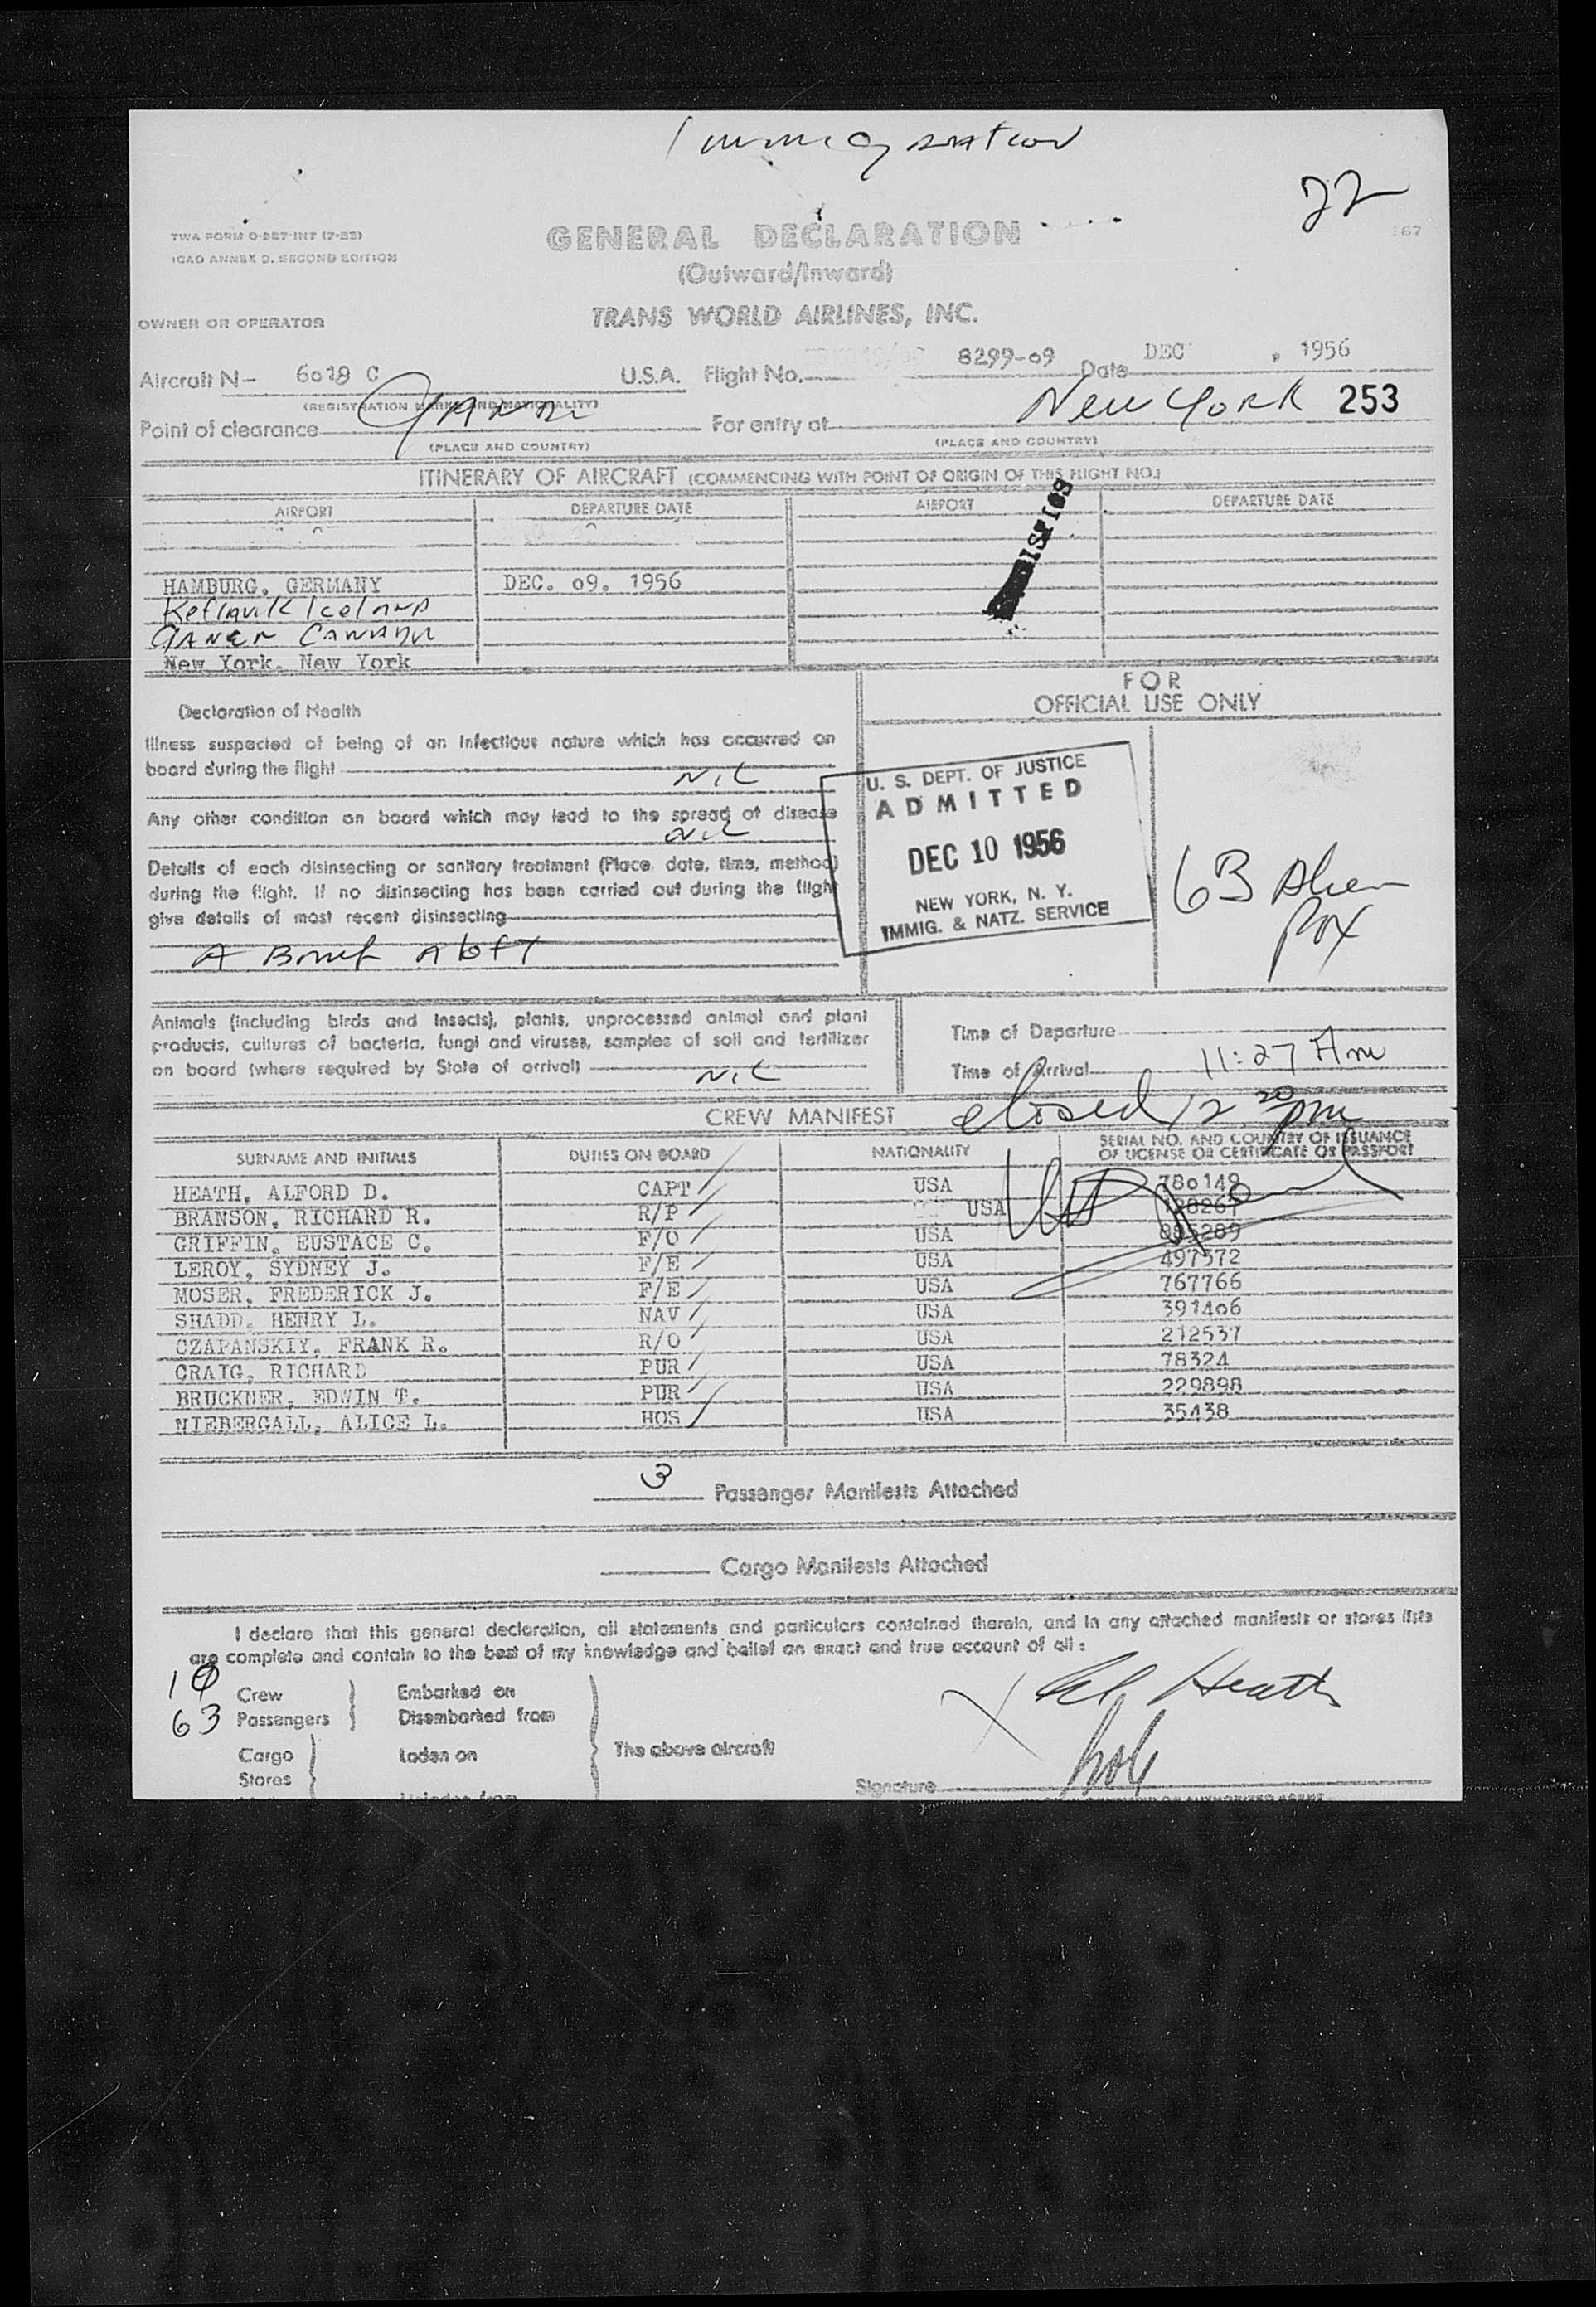 Immigration
22
TWA FORM O-257-INT (7-55)
ICAO ANNEX 9. SECOND EDITION
GENERAL DECLARATION
(Outward/Inward)
TRANS WORLD AIRLINES, INC.
OWNER OR OPERATOR
Aircraft N- 6018 C U.S.A. Flight No. 8299-09 Date DEC , 1956
(REGISTRATION MARKS AND NATIONALITY)
Point of clearance For entry at New York 253
(PLACE AND COUNTRY) (PLACE AND COUNTRY)
ITINERARY OF AIRCRAFT (COMMENCING WITH POINT OF ORIGIN OF THIS FLIGHT NO.)
AIRPORT DEPARTURE DATE AIRPORT DEPARTURE DATE
HAMBURG, GERMANY DEC. 09. 1956
Keflavik Iceland
GANER CANADA
New York, New York
FOR
OFFICIAL USE ONLY
Declaration of Health
Illness suspected of being of an infectious nature which has occurred on
board during the flight Nil
Any other condition on board which may lead to the spread of disease
Nil
Details of each disinsecting or sanitary treatment (Place, date, time, method)
during the flight. If no disinsecting has been carried out during the flight
give details of most recent disinsecting
A Bomb Aloft
U. S. DEPT. OF JUSTICE
ADMITTED
DEC 10 1956
NEW YORK, N. Y.
IMMIG. & NATZ. SERVICE
63 Alien
Animals (including birds and insects), plants, unprocessed animal and plant
products, cultures of bacteria, fungi and viruses, samples of soil and fertilizer
on board (where required by State of arrival) Nil
Time of Departure
Time of Arrival 11:27 Am
closed 12 20 pm
CREW MANIFEST
SURNAME AND INITIALS DUTIES ON BOARD NATIONALITY SERIAL NO. AND COUNTRY OF ISSUANCE
OF LICENSE OR CERTIFICATE OR PASSPORT
HEATH, ALFORD D. CAPT USA 780149
BRANSON, RICHARD R. R/P USA
GRIFFIN, EUSTACE C. F/O USA
LEROY, SYDNEY J. F/E USA 497572
MOSER, FREDERICK J. F/E USA 767766
SHADD, HENRY L. NAV USA 391406
CZAPANSKIY, FRANK R. R/O USA 212537
CRAIG, RICHARD PUR USA 78324
BRUCKNER, EDWIN T. PUR USA 229898
NIEBERGALL, ALICE L. HOS USA 35438
3 Passenger Manifests Attached
Cargo Manifests Attached
I declare that this general declaration, all statements and particulars contained therein, and in any attached manifests or stores lists
are complete and contain to the best of my knowledge and belief an exact and true account of all :
10 Crew Embarked on
63 Passengers Disembarked from
Cargo Laden on The above aircraft
Stores
Al Heath
Signature